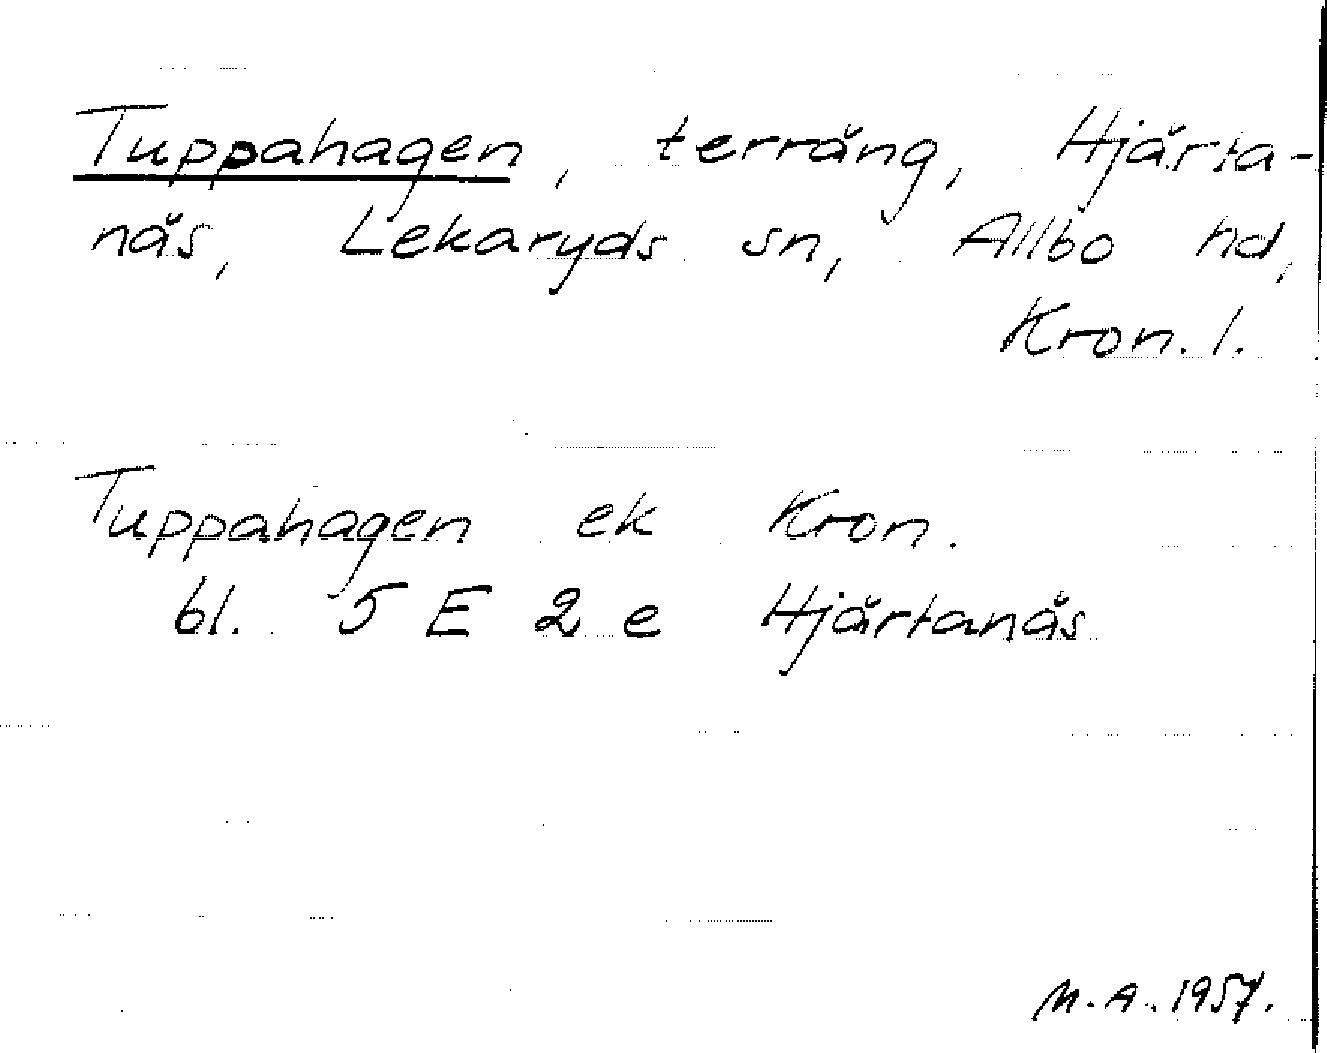 Tuppahagen, terräng, Hjärta-
näs, Lekaryds sn, Allbo hd,
Kron. l.
Tuppahagen ek Kron.
bl. 5 E 2 e Hjärtanäs
M.A. 1957.